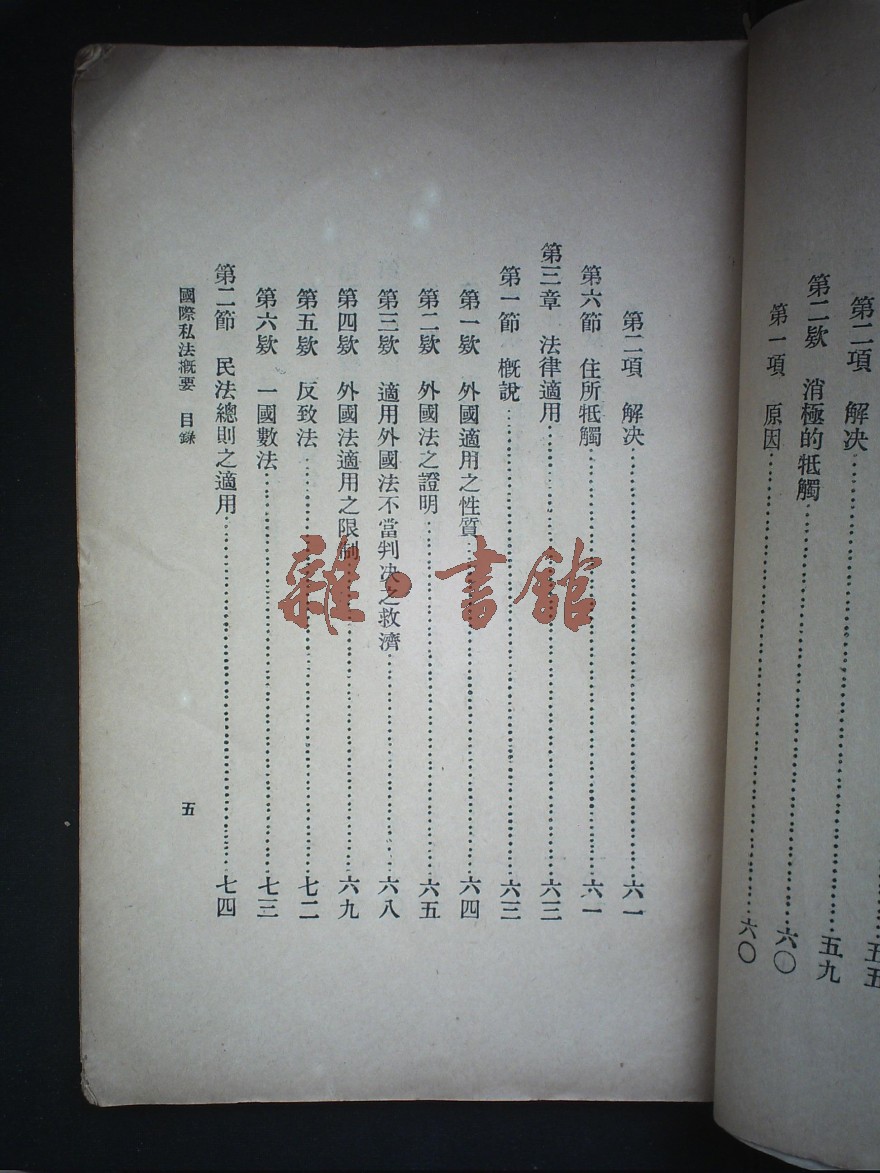 五五
第二項 解决…………五九
第二欵 消極的牴觸…………六〇
第一項 原因…………六〇
第二項 解决…………六一
第六節 住所牴觸…………六一
第三章 法律適用…………六三
第一節 概說…………六三
第一欵 外國適用之性質…………六四
第二欵 外國法之證明…………六五
第三欵 適用外國法不當判决之救濟…………六八
第四欵 外國法適用之限制…………六九
第五欵 反致法…………七二
第六欵 一國數法…………七三
第二節 民法總則之適用…………七四
國際私法概要 目錄 五
雜·書館